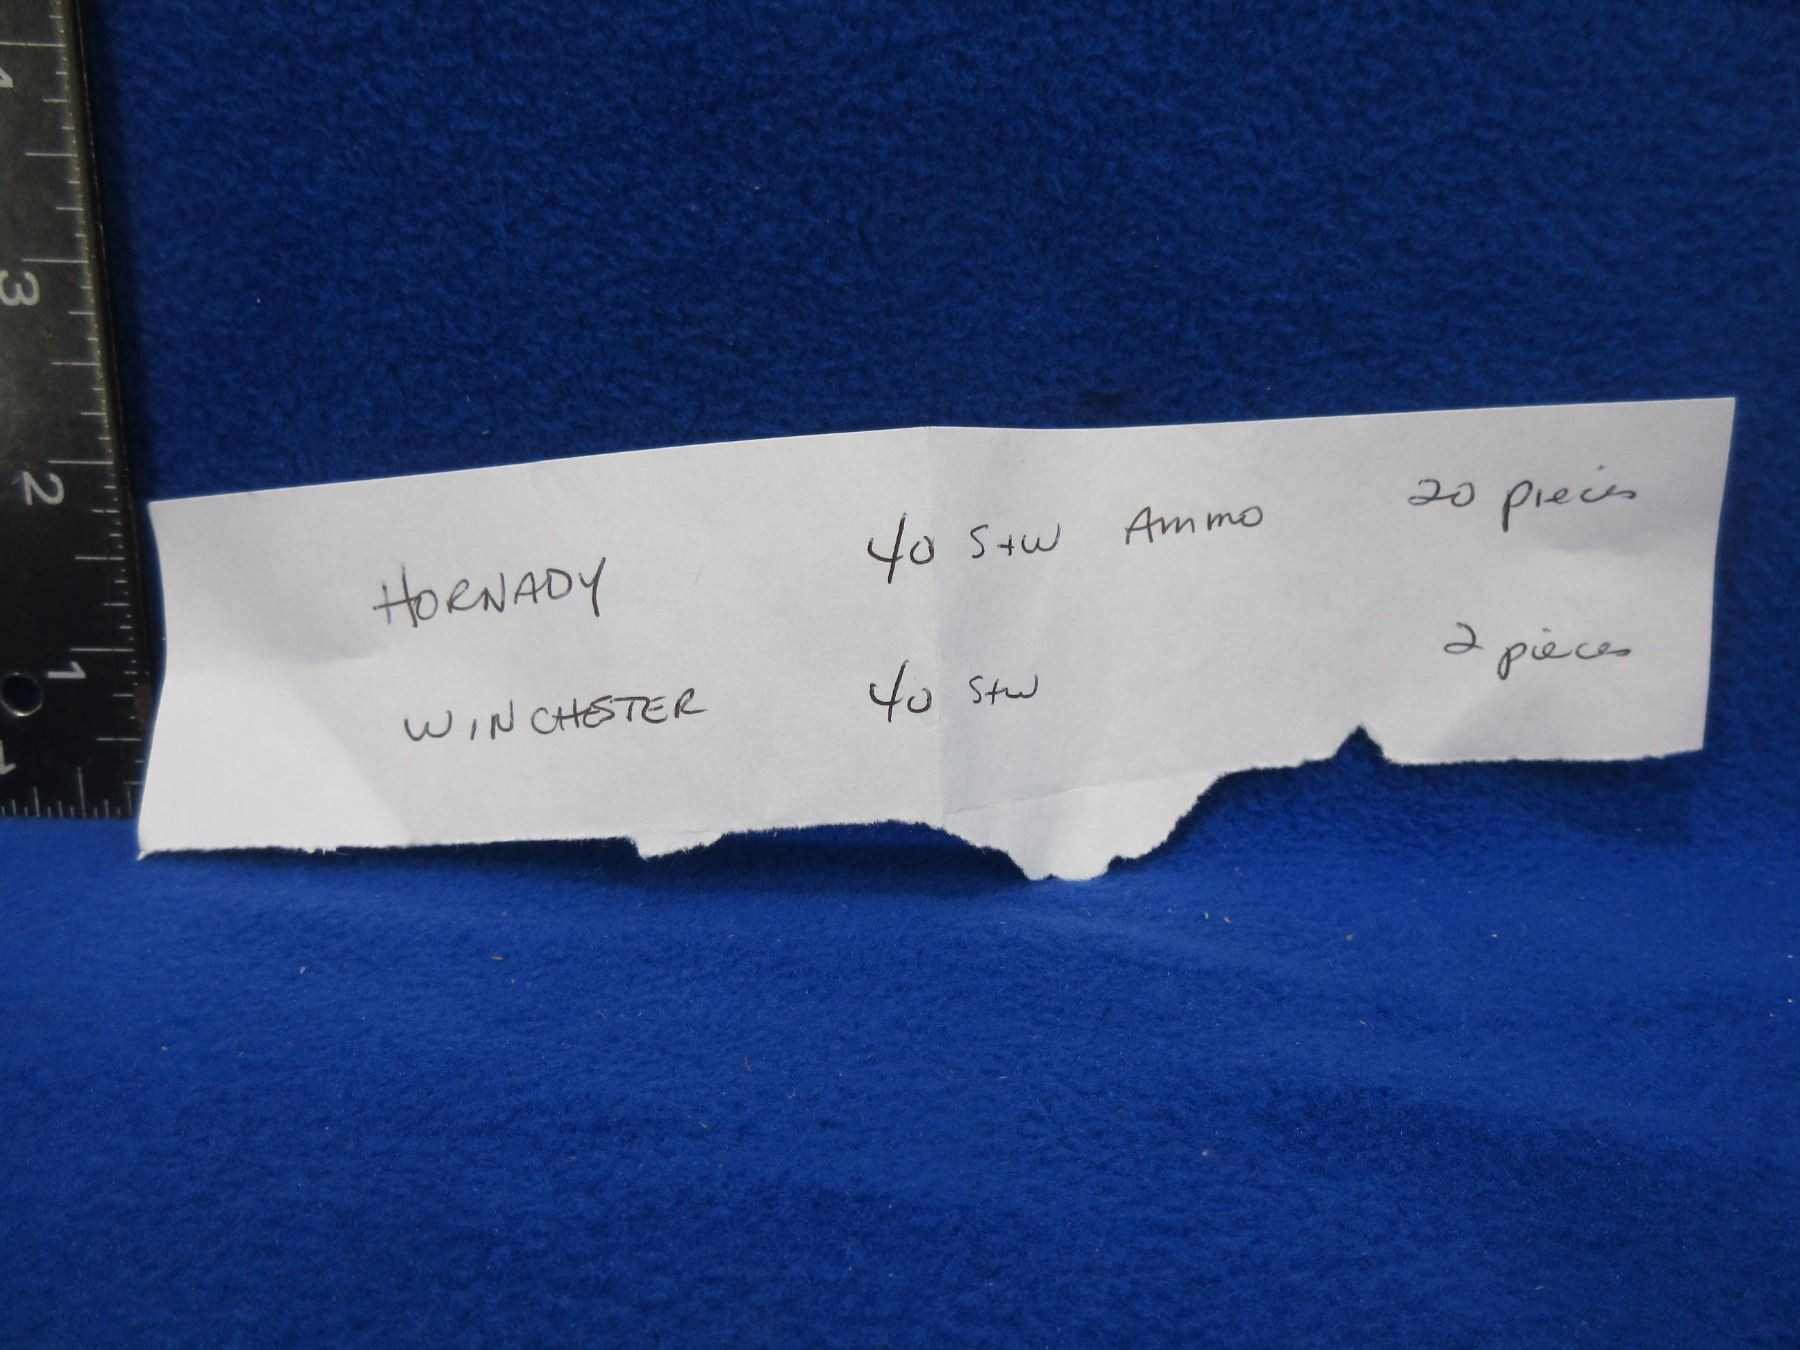 HORNADY 40 S+W Ammo 20 pieces
WINCHESTER 40 S+W 2 pieces
4
3
2
1
1